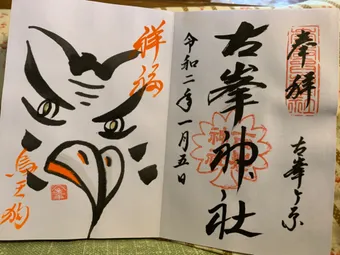 奉拝
古峯ヶ原
古峯神社
令和二年一月五日
祥福
烏天狗